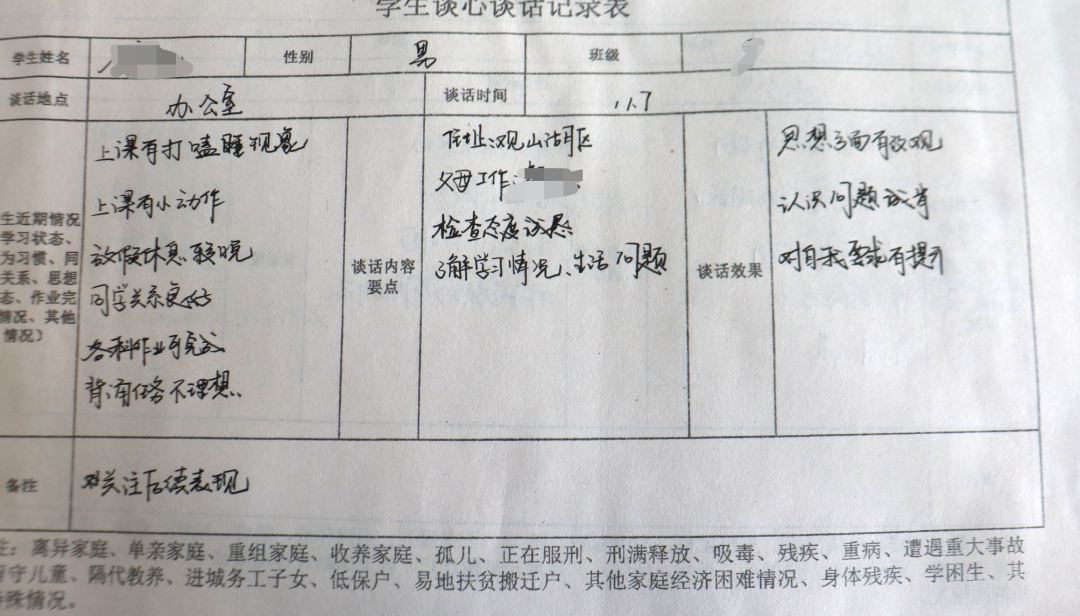 学生谈心谈话记录表
学生姓名 性别 男 班级
谈话地点 办公室 谈话时间 11.7
生近期情况
学习状态、
为习惯、同
关系、思想
态、作业完
情况、其他
情况）
上课有打嗑睡现象
上课有小动作
放假休息较晚
同学关系良好
各科作业可完成
背诵任务不理想.
谈话内容
要点
住址:观山湖区
父母工作:
检查态度诚恳
了解学习情况、生活问题
谈话效果
思想方面有改观
认识问题诚肯
对自我要求有提升
备注
关注后续表现
注：离异家庭、单亲家庭、重组家庭、收养家庭、孤儿、正在服刑、刑满释放、吸毒、残疾、重病、遭遇重大事故
留守儿童、隔代教养、进城务工子女、低保户、易地扶贫搬迁户、其他家庭经济困难情况、身体残疾、学困生、其
特殊情况。